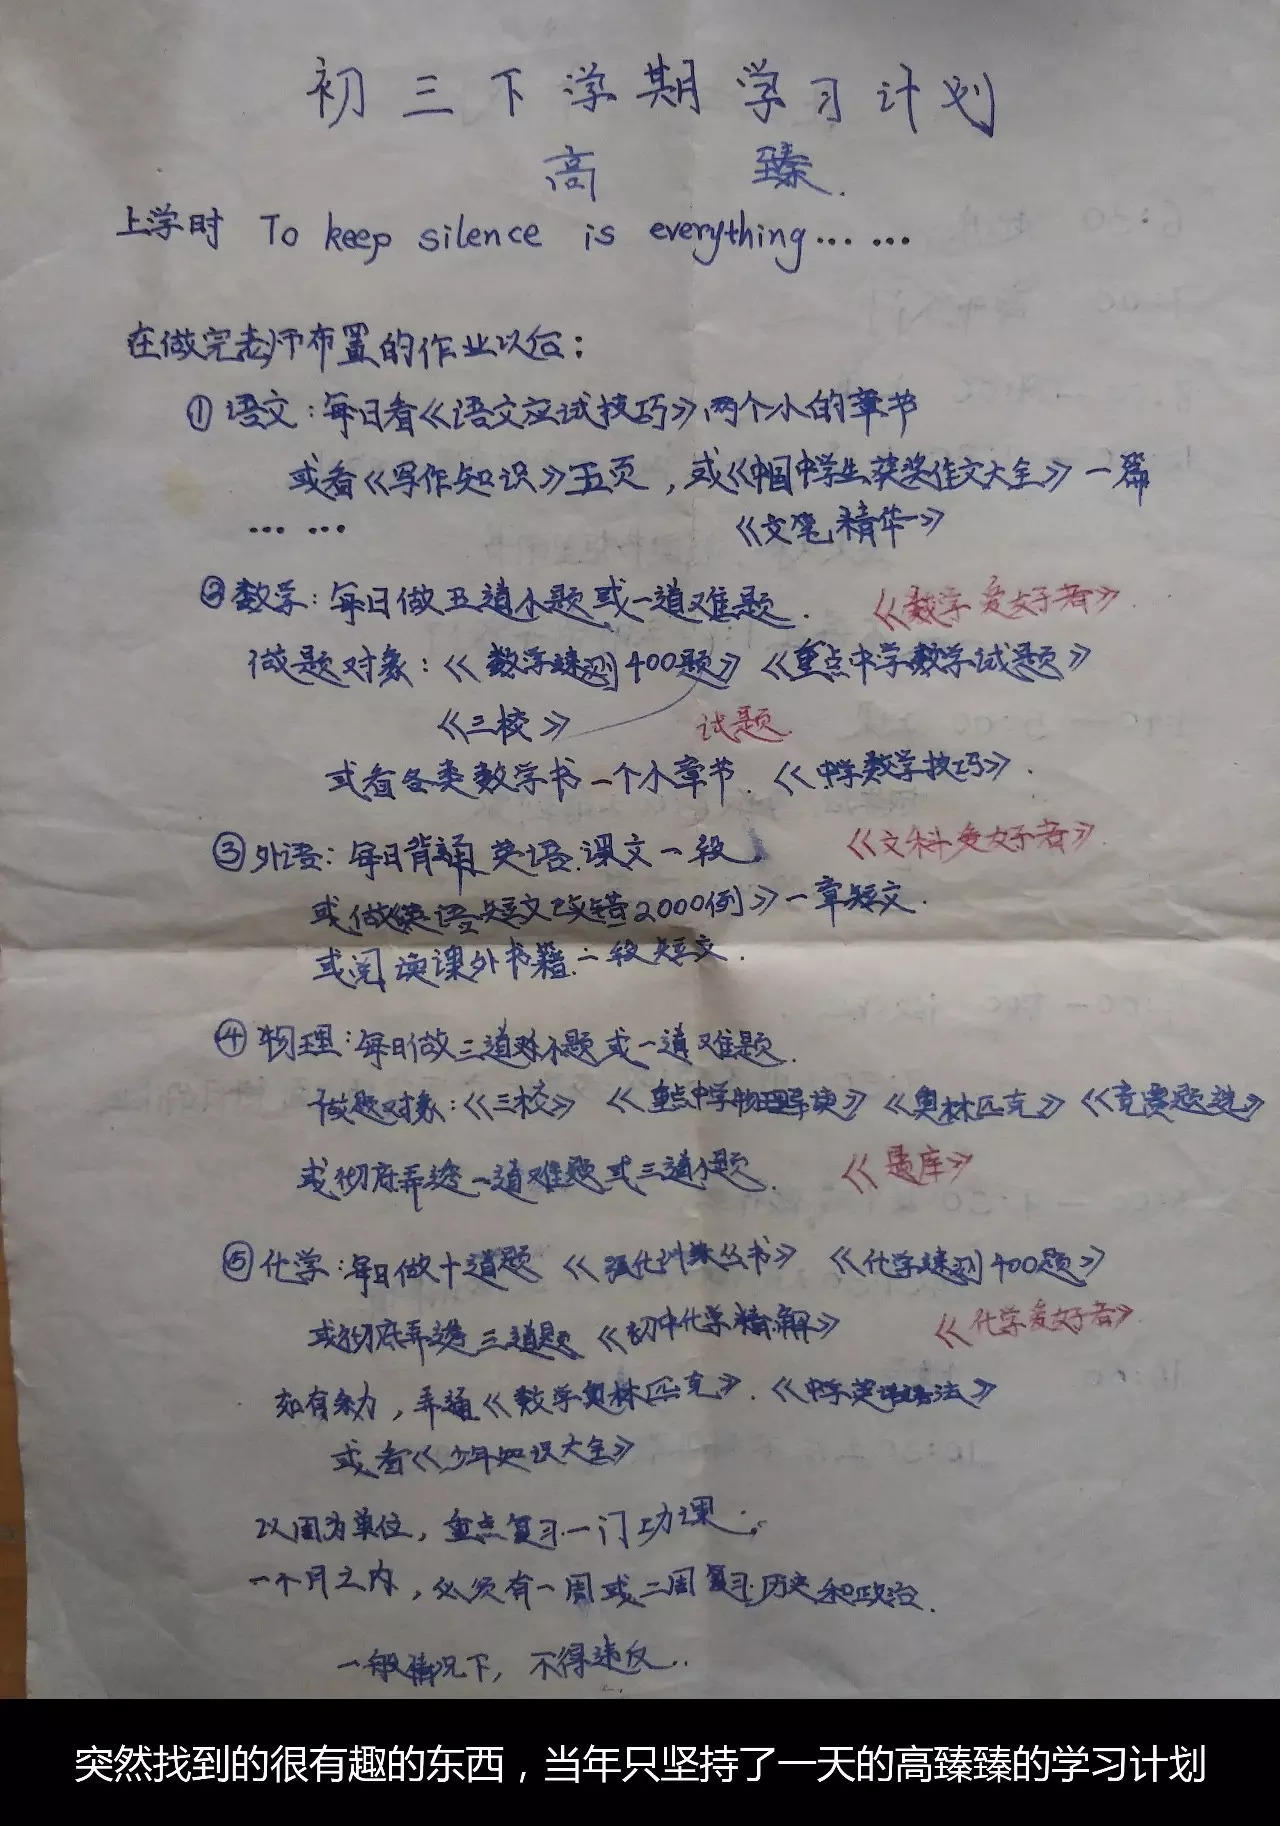 初三下学期学习计划
高 臻.
上学时 To keep silence is everything……
在做完老师布置的作业以后：
①语文：每日看《语文应试技巧》两个小的章节
或看《写作知识》五页，或《中国中学生获奖作文大全》一篇
…… 《文笔精华》
②数学：每日做五道小题或一道难题. 《数学爱好者》
做题对象：《数学速测400题》《重点中学数学试题》
《三校》 试题
或看各类数学书一个小章节.《中学数学技巧》.
③外语：每日背诵英语课文一段 《文科爱好者》
或做《英语短文改错2000例》一章短文.
或阅读课外书籍二段短文.
④物理：每日做三道小题或一道难题.
做题对象：《三校》《重点中学物理导读》《奥林匹克》《竞赛题选》
或彻底弄透一道难题或三道小题. 《题库》
⑤化学：每日做十道题《强化训练丛书》《化学速测400题》
或彻底弄透三道题《初中化学精解》 《化学爱好者》
如有余力，弄通《数学奥林匹克》.《中学英语语法》
或看《少年知识大全》
以周为单位，重点复习一门功课.
一个月之内，必须有一周或二周复习历史和政治.
一般情况下，不得违反..
突然找到的很有趣的东西，当年只坚持了一天的高臻臻的学习计划